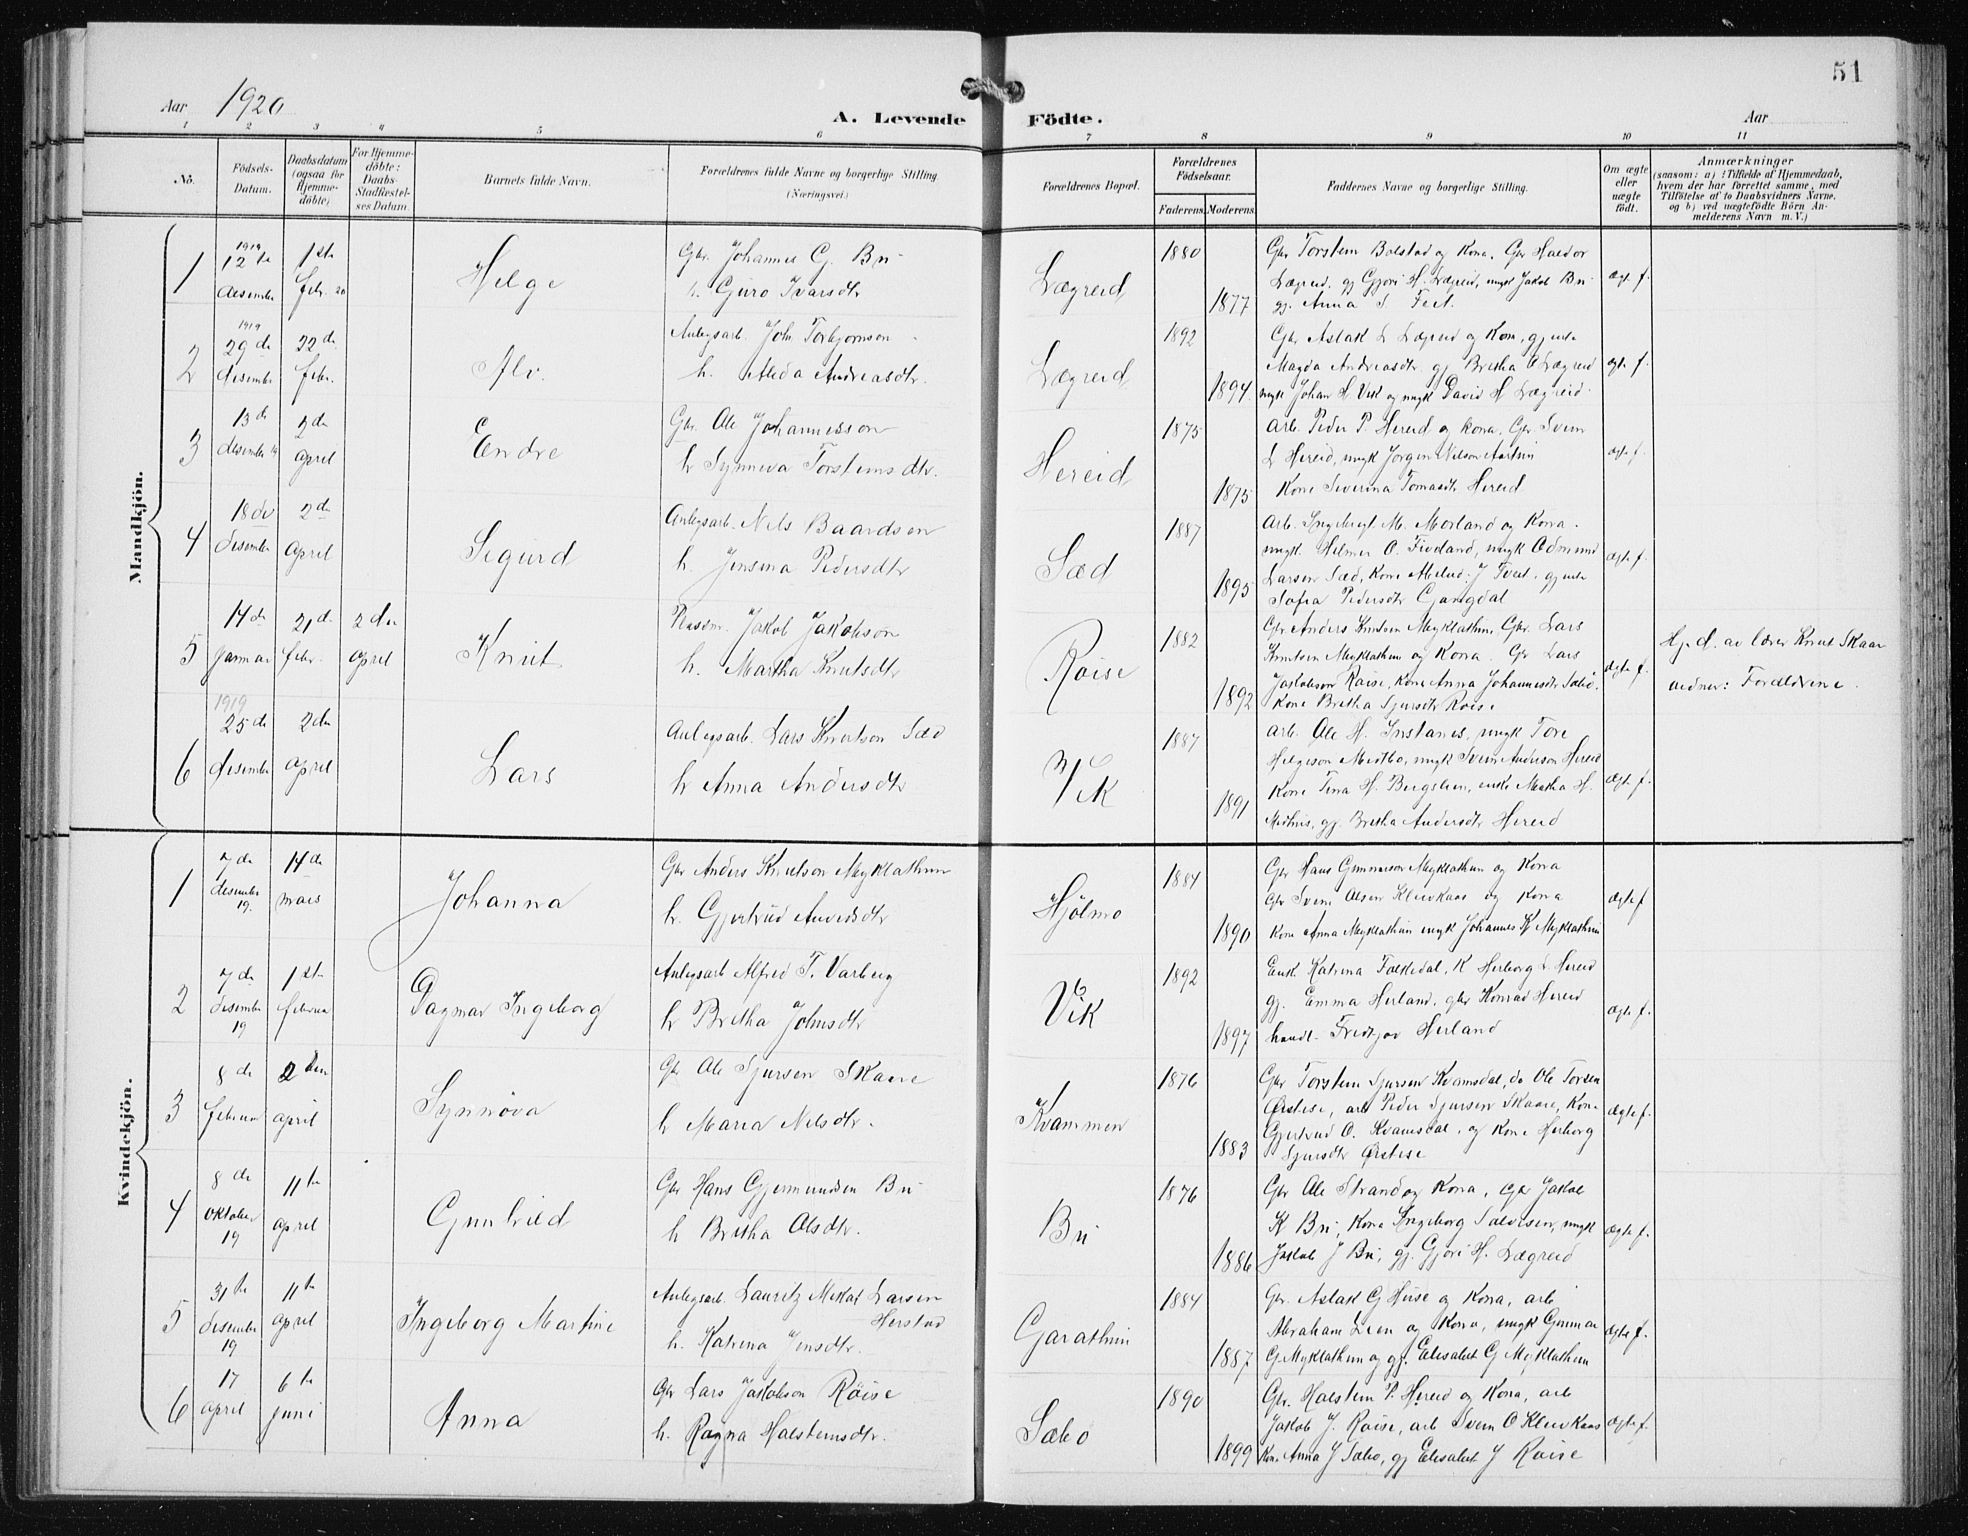 51
Aar 1920
A. Levende Födte.
Aar
1 2 3 4 5 6 7 8 9 10 11
No. Födsels-Datum. Daabsdatum (ogsaa for Hjemme-döbte) For Hjemme-döbte: Daabs-Stadfæstel-ses Datum. Barnets fulde Navn. Forældrenes fulde Navne og borgerlige Stilling. (Næringsvei.) Forældrenes Bopæl. Forældrenes Födselsaar. Faderens. Moderens. Faddernes Navne og borgerlige Stilling. Om ægte eller uægte födt. Anmærkninger (saasom: a) i Tilfælde af Hjemmedaab, hvem der har forrettet samme, med Tilföielse af to Daabsvidners Navne, og b) ved uægtefödte Börn An-melderens Navn m. V.)
Mandkjön.
1 1919 12te desember 1ste febr. 20 Helge Gbr. Johannes G. Bu h. Guro Ivarsdtr Lægreid 1880 1877 Gbr Torstein Bolstad og Kona, Gbr Haldor
Lægreid, gj Gjøri H. Lægreid, ungk Jakob Bu
gj. Anna S Feet. ægte f.
2 1919 29de desember 22de febr. Alv. Anlegsarb. Joh. Torbjornson h. Alida Andreasdtr. Lægreid 1892 1894 Gbr Aslak L Lægreid og Kona, gjente
Magda Andreasdtr gj Bretha O Lægreid
ungk Johan H Vik og ungk David H Lægreid ægte f.
3 13de desember 19 2de April Endre Gbr. Ole Johannesson h Synneva Torsteinsdtr. Hereid 1875 1875 Arb. Peder P Hereid og kona, Gbr. Svein
L Hereid, ungk Jorgen Nilson Aarthun
Kone Severina Tomasdtr Hereid ægte f.
4 18de desember 2de April Sigurd Anlegsarb. Nils Baardson h. Jensina Pedersdtr Sæd 1887 1895 Arb. Ingebrigt M. Morland og Kona.
ungk. Helmer O. Fivland, ungk Odmund
Larsen Sæd, Kone Melud: J Tveit, gjente
Sofia Pedersdtr Gangdal ægte f.
5 14de Januar 21de febr. 2den april Knut Jakob Jakobson h. Martha Knutsdtr Røise 1882 1892 Gbr Anders Knutsen Myklathun, Gbr. Lars
Knutsen Myklathun og Kona. Gbr Lars
Jakobson Røise, Kone Anna Johannesdtr Sæbø,
Kone Bretha Sjursdtr Røise ægte f. Hj. d. av lærer Knut Skaar
vidner: Forældrene.
6 1919 25de desember 2den april Lars Anlegsarb. Lars Knutson Sæd h Anna Andersdtr Vik 1887 1891 Arb. Ole H. Instanes, ungk Tore
Helgeson Midtbø, ungk Svein Anderson Hereid
Kone Tina H. Bergstein, enke Martha H.
Medhus, gj. Bretha Andersdtr Hereid ægte f.
Kvindekjön.
1 7de desember 19. 14de mars Johanna Gbr Anders Knutson Myklathun h. Gjertrud Anversdtr Hjølmo 1884 1890 Gbr Hans Gunnarson Myklathun og Kona
Gbr Svein Olsen Kleivkaas og Kona
Kone Anna Myklathun ungk Johannes K Myklathun ægte f
2 7de desember 19 1ste februar Dagmar Ingeborg Anlegsarb Alfred T. Varberg h Bretha Johnsdtr Vik 1892 1897 Enk. Katrina Folkedal, K Herborg L Hereid
gj. Emma Herland, gbr Konrad Hereid
handl. Fredtjov Herland ægte f.
3 8de februar 2den april Synnøva Gbr Ole Sjursen Skaare h Maria Nilsdtr. Kvammen 1876 1883 Gbr Torstein Sjursen Kvamsdal, do Ole Torsen
Øistese, arb Peder Sjursen Skaare, Kone
Gjertrud O. Kvamsdal, og Kone Herborg
Sjursdtr Øistese ægte f.
4 8de oktober 19 11te april Gunhild Gbr Hans Gjermundsen Bu h Bretha Olsdtr. Bu 1876 1886 Gbr Ole Strand og Kona, Gbr Jakob
K Bu, Kona Ingeborg Salvesen, ungk
Jakob J Bu, gj. Gjøri H. Lægreid ægte f.
5 31te desember 19 11te april Ingeborg Martine Anlegsarb. Lauritz Mikal Larsen Herstad h. Katrina Jensdtr. Garathun 1884 1887 Gbr. Aslak G Huse og Kona, arb
Abraham Lien og Kona, ungk Gunnar
G Myklathun og gj. Elisabet G Myklathun ægte f.
6 17 april 6te Juni Anna Gbr Lars Jakobson Røise h. Ragna Halsteinsdtr. Sæbø 1890 1899 Gbr. Halstein P. Hereid og Kona, arb
Jakob J. Røise, arb Svein O Kleivkaas
Kone Anna J Sæbo, gj Elisabet J Røise ægte f.